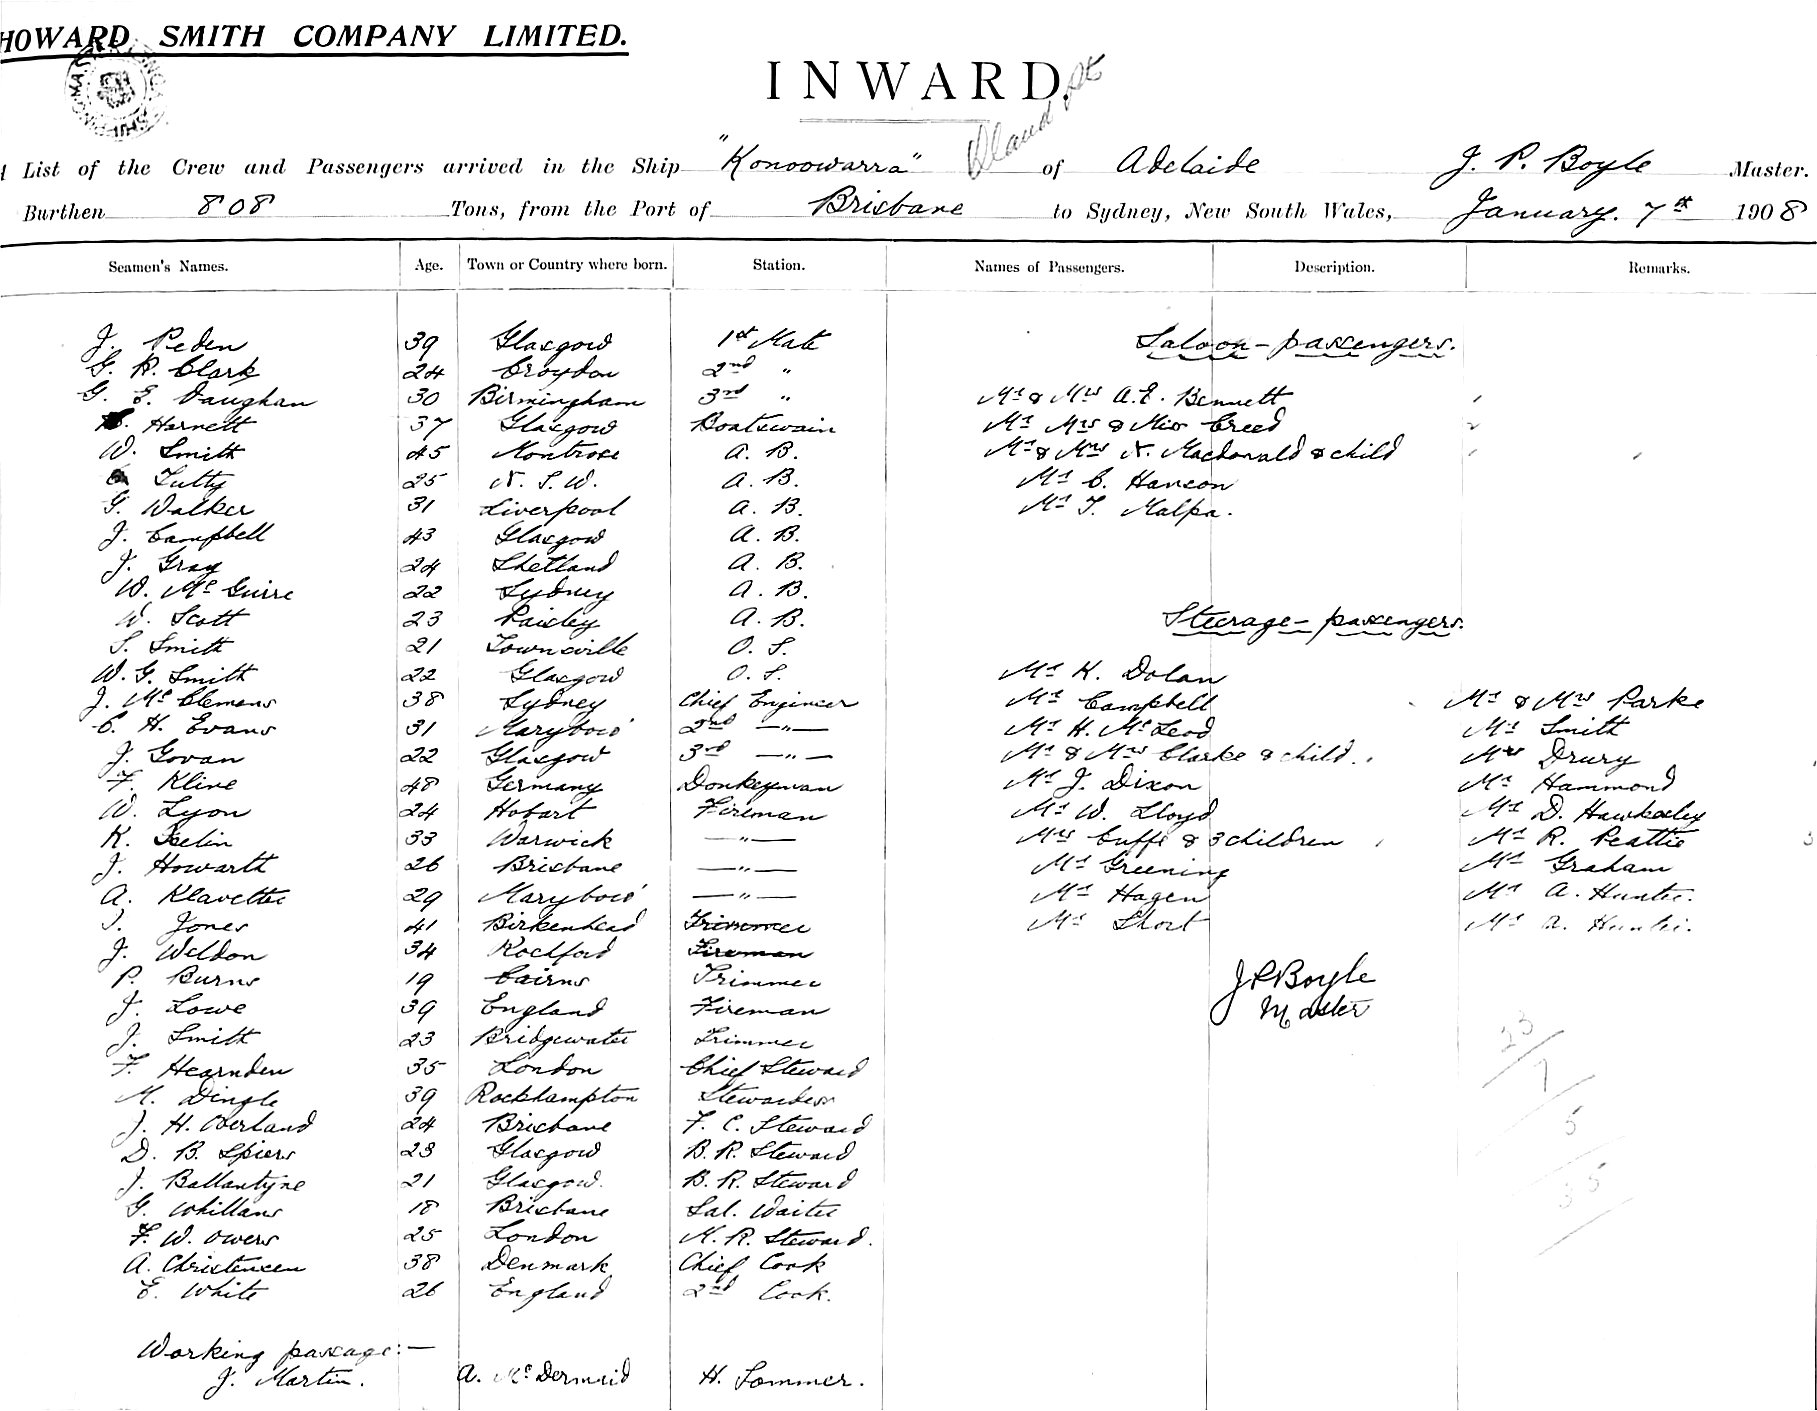 HOWARD SMITH COMPANY LIMITED.
INWARD.
List of the Crew and Passengers arrived in the Ship "Konoowarra" of Adelaide J. P. Boyle Master.
Burthen 808 Tons, from the Port of Brisbane to Sydney, New South Wales, January. 7th 1908
Seamen's Names. Age. Town or Country where born. Station. Names of Passengers. Description. Remarks.
J. Peden 39 Glasgow 1st Mate Saloon - passengers.
G. R. Clark 24 Croydon 2nd "
G. E. Vaughan 30 Birmingham 3rd " Mr & Mrs A.E. Bennett
Harnett 37 Glasgow Boatswain Mr Mrs & Miss Creed
W. Smith 45 Montrose A. B. Mr & Mrs N. Macdonald & child
Tutty 25 N. S. W. A. B. Mr C. Hanson
G. Walker 31 Liverpool A. B. Mr T. Malpa.
J. Campbell 43 Glasgow A. B.
J. Gray 24 Shetland A. B.
W. McGuire 22 Sydney A. B.
W. Scott 23 Paisley A. B. Steerage - passengers.
S. Smith 21 Townsville O. S.
W. G. Smith 22 Glasgow O. S. Mr K. Dolan
J. McClemens 38 Sydney Chief Engineer Mr Campbell Mr & Mrs Parke
C. H. Evans 31 Marybow' 2nd —"— Mr H. McLeod Mr Smith
J. Govan 22 Glasgow 3rd —"— Mr & Mrs Clarke & child. Mrs Drury
F. Kline 48 Germany Donkeyman Mr J. Dixon Mr Hammond
W. Lyon 24 Hobart Fireman Mr W. Lloyd Mr D. Hawkesley
K. Iselin 33 Warwick —"— Mrs Cuffe & 3 children Mr R. Peattie
J. Howarth 26 Brisbane —"— Mr Greening Mr Graham
A. Klavette 29 Marybow' —"— Mr Hagen Mr A. Hunter.
Jones 41 Birkenhead Trimmer Mr Short Mr A. Hunter.
J. Weldon 34 Rockford Fireman
P. Burns 19 Cairns Trimmer J P Boyle
J. Lowe 39 England Fireman Master
J. Smith 23 Bridgewater Trimmer
F. Hearnden 35 London Chief Steward
M. Dingle 39 Rockhampton Stewardess
J. H. Overland 24 Brisbane F. C. Steward
D. B. Spiers 23 Glasgow B. R. Steward
J. Ballantyne 21 Glasgow. B. R. Steward
G. Whillans 18 Brisbane Sal. Waiter
F. W. Owers 25 London M. R. Steward.
A. Christensen 38 Denmark Chief Cook
E. White 26 England 2nd Cook.
Working passage:—
J. Martin. A. McDermaid H. Sommer.